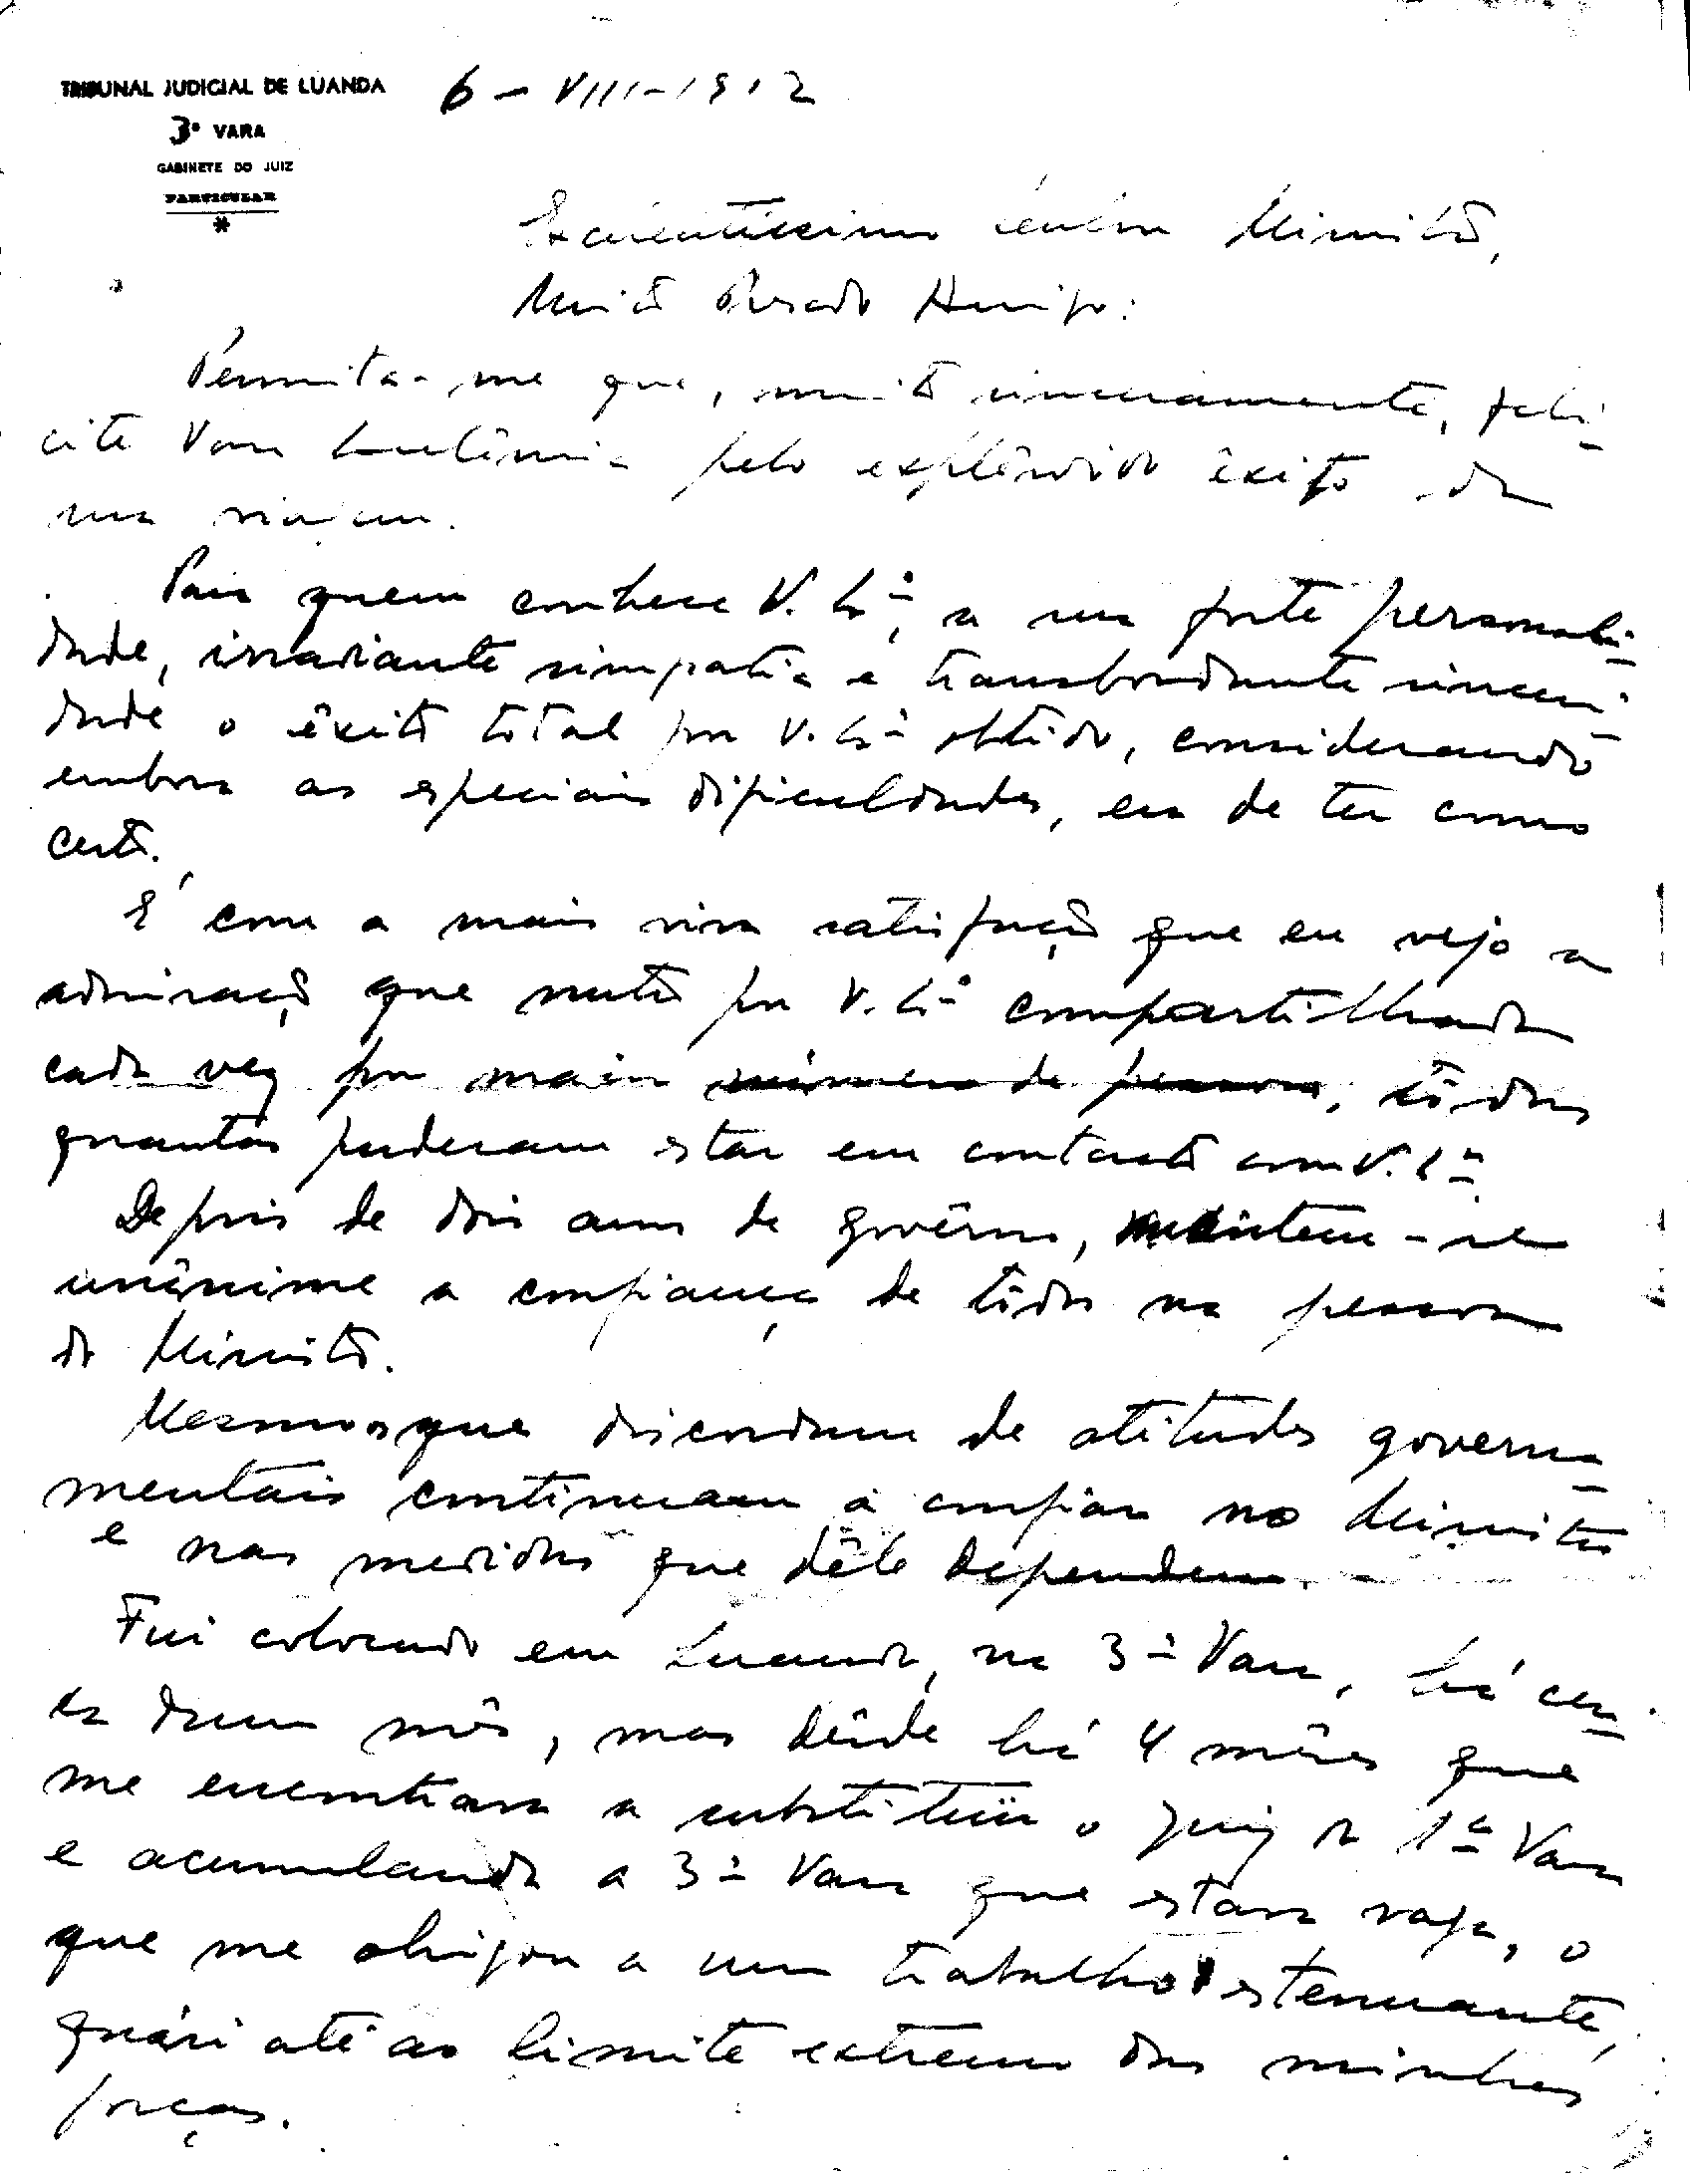 TRIBUNAL JUDICIAL DE LUANDA 6-VIII-1912
3ª VARA
GABINETE DO JUIZ
PARTICULAR
*
Excelentíssimo Senhor Ministro,
Muito Prezado Amigo:
Permita-me que, muito sinceramente, feli-
cite Vossa Excelência pelo esplêndido êxito da
sua viagem.
Para quem conhece V. Exª, a sua forte personali-
dade, irradiante simpatia e transbordante sinceri-
dade o êxito total por V. Exª obtido, considerando
embora as especiais dificuldades, era de ter como
certo.
É com a mais viva satisfação que eu vejo a
admiração que nutro por V. Exª compartilhada
cada vez por mais número de pessoas, tôdas
quantas puderam estar em contacto com V. Exª.
Depois de dois anos de govêrno, mantem-se
unânime a confiança de todos na pessoa
do Ministro.
Mesmo os que discordam de atitudes governa-
mentais continuam a confiar no Ministro
e nas medidas que dêle dependem.
Fui colocado em Luanda, na 3ª Vara, há cer-
ca dum mês, mas dêsde há 4 mêses que
me encontrava a substituir o Juiz da 1ª Vara
e acumulando a 3ª Vara que estava vaga, o
que me obrigou a um trabalho estenuante,
quási até ao limite extremo das minhas
forças.